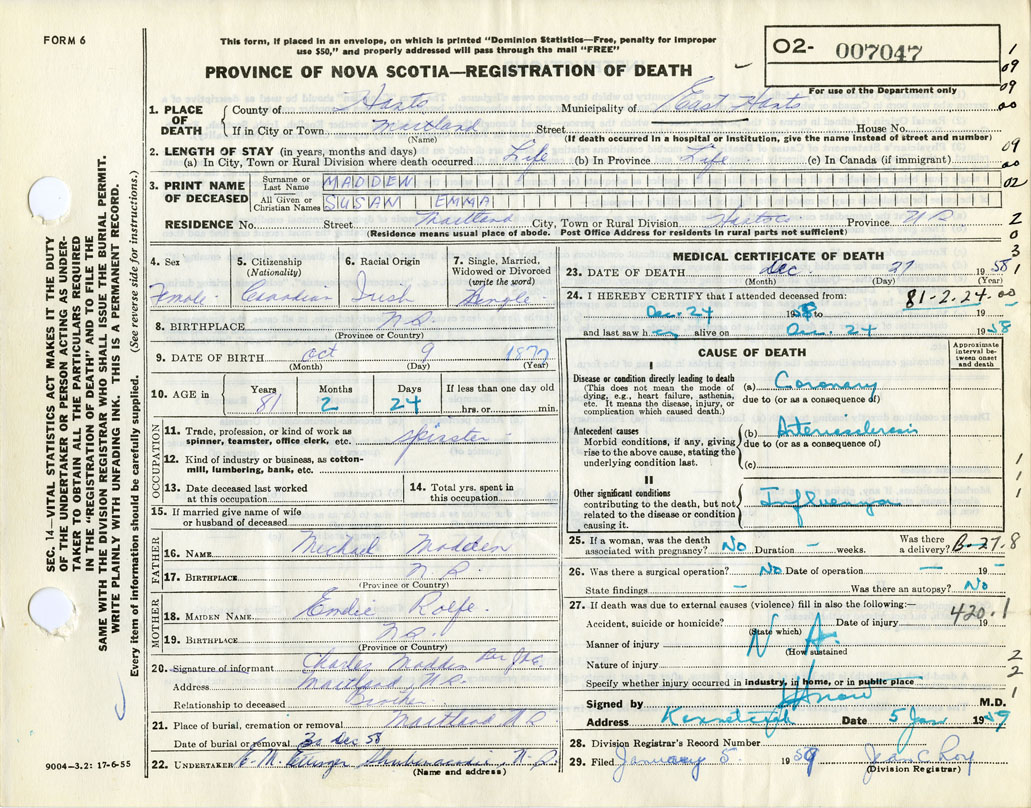 FORM 6
This form, if placed in an envelope, on which is printed "Dominion Statistics—Free, penalty for improper
use $50," and properly addressed will pass through the mail "FREE"
PROVINCE OF NOVA SCOTIA—REGISTRATION OF DEATH
O2- 007047
For use of the Department only
1
09
09
00
09
02
2
0
3
1
1. PLACE OF DEATH
County of Hants Municipality of East Hants
If in City or Town Maitland Street House No.
(Name) (If death occurred in a hospital or institution, give the name instead of street and number)
2. LENGTH OF STAY (in years, months and days)
(a) In City, Town or Rural Division where death occurred Life (b) In Province Life (c) In Canada (if immigrant)
3. PRINT NAME OF DECEASED
Surname or Last Name MADDEN
All Given or Christian Names SUSAN EMMA
RESIDENCE No. Street Maitland City, Town or Rural Division Hants Co Province N.S.
(Residence means usual place of abode. Post Office Address for residents in rural parts not sufficient)
SEC. 14—VITAL STATISTICS ACT MAKES IT THE DUTY
OF THE UNDERTAKER OR PERSON ACTING AS UNDER-
TAKER TO OBTAIN ALL THE PARTICULARS REQUIRED
IN THE "REGISTRATION OF DEATH" AND TO FILE THE
SAME WITH THE DIVISION REGISTRAR WHO SHALL ISSUE THE BURIAL PERMIT.
WRITE PLAINLY WITH UNFADING INK. THIS IS A PERMANENT RECORD.
Every item of information should be carefully supplied. (See reverse side for instructions.)
4. Sex
Female
5. Citizenship
(Nationality)
Canadian
6. Racial Origin
Irish
7. Single, Married,
Widowed or Divorced
(write the word)
Single
8. BIRTHPLACE N.S.
(Province or Country)
9. DATE OF BIRTH Oct 9 1877
(Month) (Day) (Year)
10. AGE in
Years Months Days If less than one day old
81 2 24 hrs. or min.
OCCUPATION
11. Trade, profession, or kind of work as
spinner, teamster, office clerk, etc.
12. Kind of industry or business, as cotton-
mill, lumbering, bank, etc.
13. Date deceased last worked
at this occupation
14. Total yrs. spent in
this occupation
15. If married give name of wife
or husband of deceased
FATHER
16. NAME Michael Madden
17. BIRTHPLACE N.S.
(Province or Country)
MOTHER
18. MAIDEN NAME Rolfe
19. BIRTHPLACE N.S.
(Province or Country)
20. Signature of informant Charles Madden
Address Maitland N.S.
Relationship to deceased Brother
21. Place of burial, cremation or removal Maitland N.S.
Date of burial or removal 30 Dec 58
22. UNDERTAKER E. M. Ettinger Shubenacadie, N.S.
(Name and address)
9004—3.2: 17-6-55
MEDICAL CERTIFICATE OF DEATH
23. DATE OF DEATH Dec. 27 1958
(Month) (Day) (Year)
24. I HEREBY CERTIFY that I attended deceased from: 81-2.24.00
Dec. 24 1958 to 19
and last saw h alive on Dec. 24 1958
CAUSE OF DEATH
Approximate interval between onset and death
I
Disease or condition directly leading to death
(This does not mean the mode of
dying, e.g., heart failure, asthenia,
etc. It means the disease, injury, or
complication which caused death.)
(a) Coronary
due to (or as a consequence of)
Antecedent causes
Morbid conditions, if any, giving
rise to the above cause, stating the
underlying condition last.
(b) Arteriosclerosis
due to (or as a consequence of)
(c)
II
Other significant conditions
contributing to the death, but not
related to the disease or condition
causing it.
Influenza
1
1
1
25. If a woman, was the death
associated with pregnancy? No Duration – weeks. Was there
a delivery? B-27.8
26. Was there a surgical operation? No Date of operation — 19 —
State findings — Was there an autopsy? No
27. If death was due to external causes (violence) fill in also the following:—
420.1
Accident, suicide or homicide? Date of injury 19
(State which)
N A.
Manner of injury
(How sustained
Nature of injury
Specify whether injury occurred in industry, in home, or in public place
2
2
1
Signed by M.D.
Address Kennetcook Date 5 Jan 1959
28. Division Registrar's Record Number
29. Filed January 5. 1959 Jean C Roy
(Division Registrar)